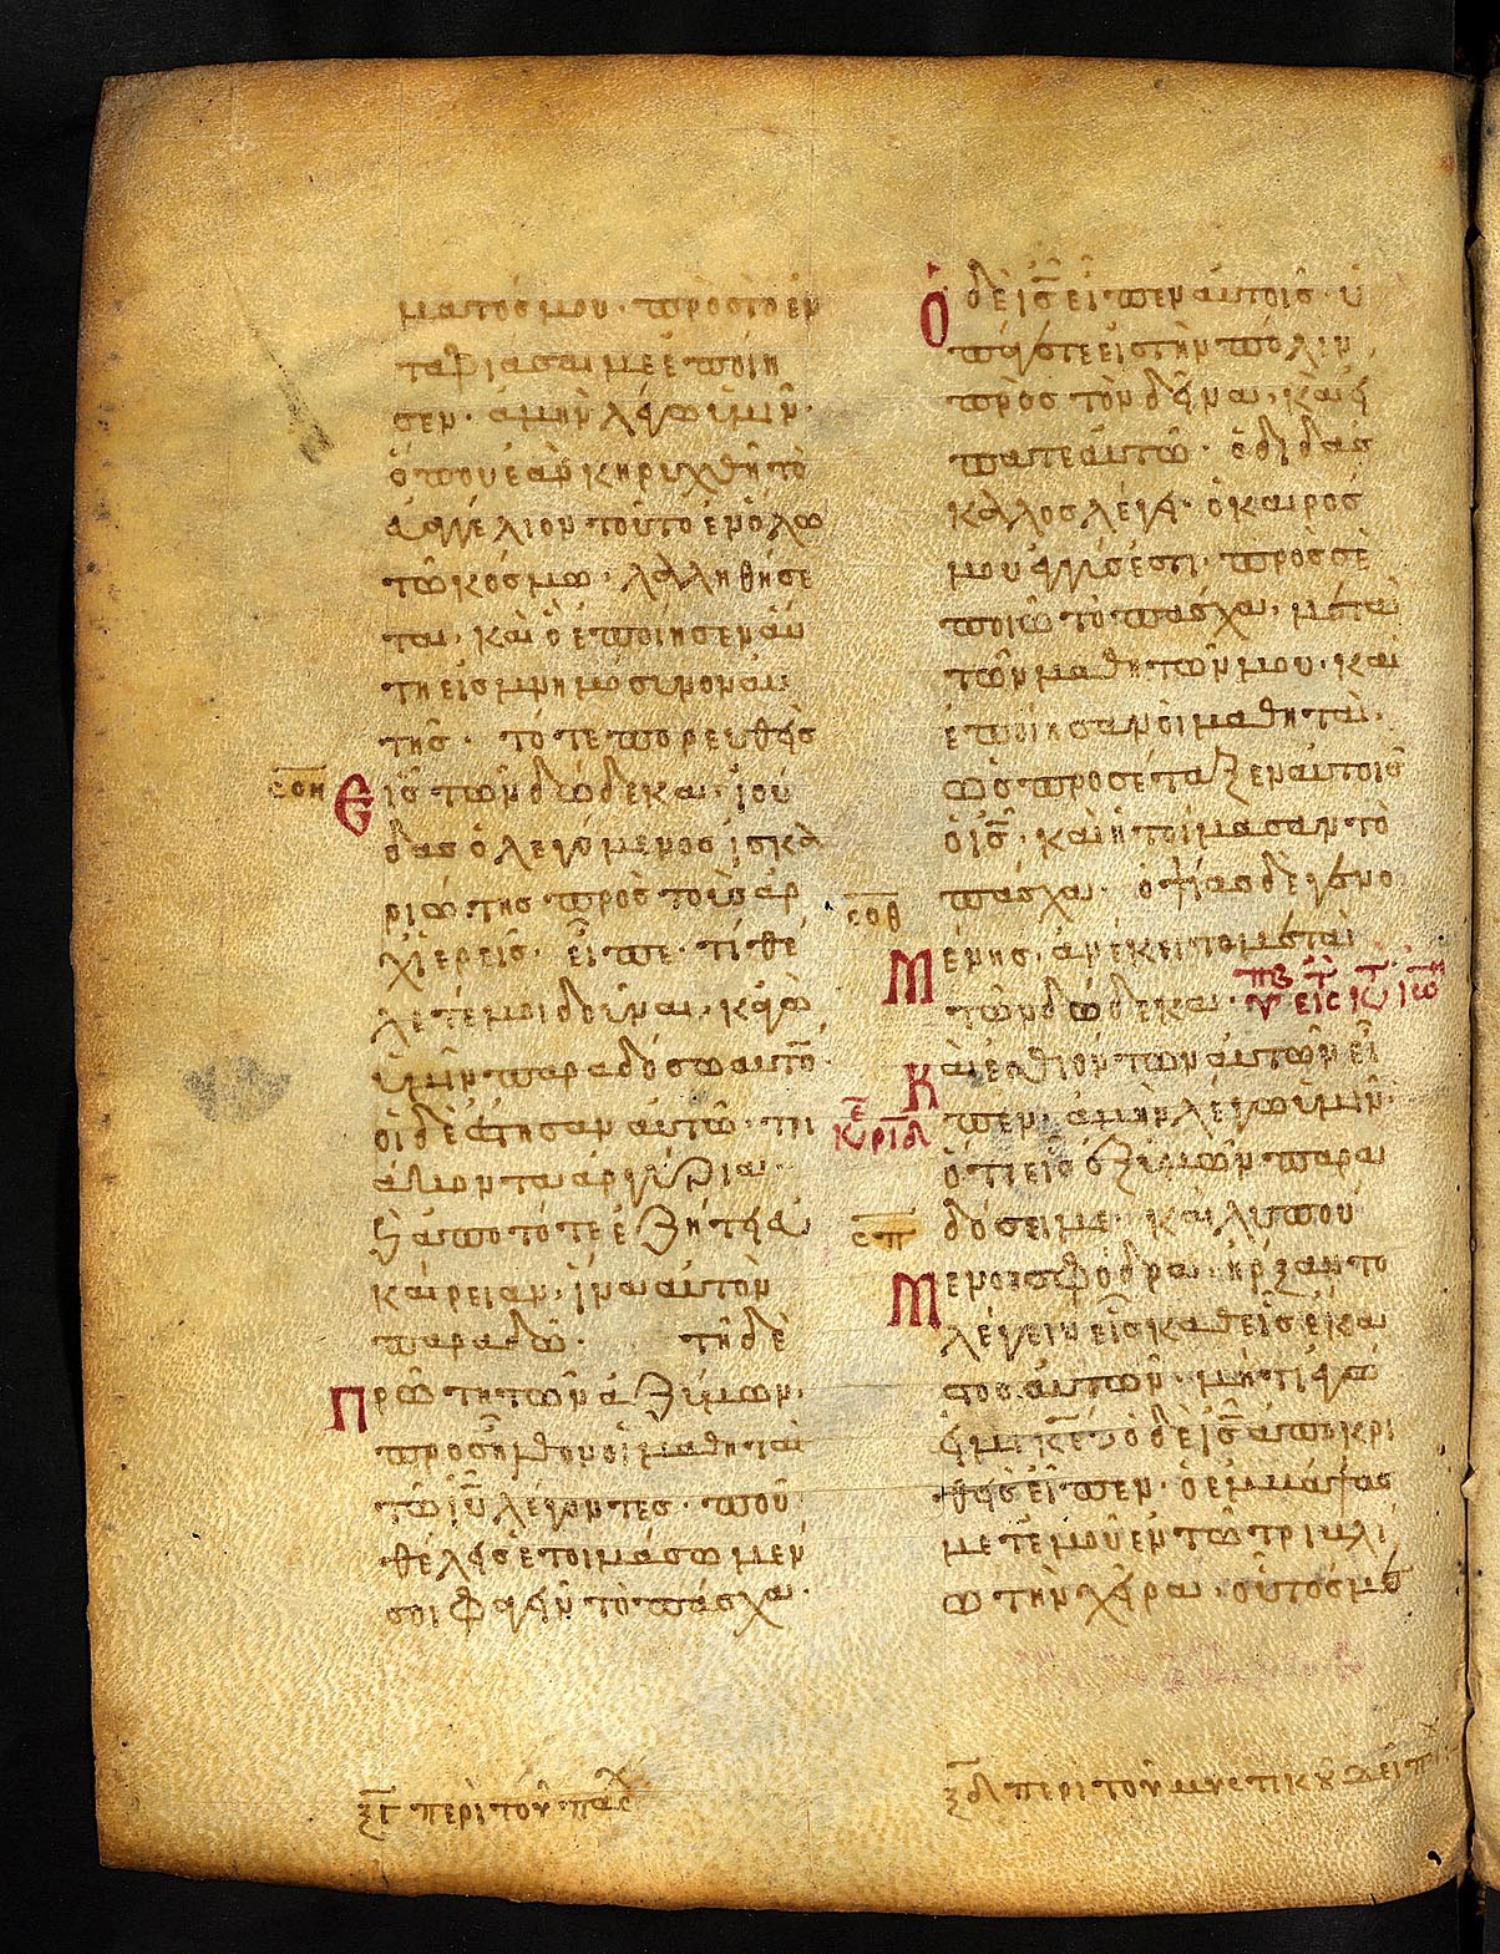 ματός μου· πρὸς τὸ ἐν
ταφιάσαι με ἐποίη
σεν· ἀμὴν λέγω ὑμῖν·
ὅπου ἐὰν κηρυχθῆ τὸ
εὐαγγέλιον τοῦτο ἐν ὅλω
τῶ κόσμω· λαληθήσε
ται, καὶ ὃ ἐποίησεν αὕ
τη εἰς μνημόσυνον αὐ
τῆς· τότε πορευθεὶς
σοη
Εἷς τῶν δώδεκα, ἰού
δας ὁ λεγόμενος ἰσκα
ριώτης πρὸς τοὺς ἀρ
χιερεῖς· εἶπε· τί θέ
λετέ μοι δοῦναι, κἀγὼ
ὑμῖν παραδώσω αὐτό·
οἱ δὲ ἔστησαν αὐτῶ· τρι
άκοντα ἀργύρια·
ϗ ἀπὸ τότε ἐζήτει εὐ
καιρείαν, ἵνα αὐτὸν
παραδῶ· τῆ δὲ
Πρώτη τῶν ἀζύμων,
προσῆλθον οἱ μαθηταὶ
τῶ ιυ λέγοντες· ποῦ
θέλεις ἑτοιμάσωμέν
σοι φαγεῖν τὸ πάσχα·
ξγ περὶ του πασχ
Ὁ δὲ ις εἶπεν αὐτοῖς· ὑ
πάγετε εἰς τὴν πόλιν
πρὸς τὸν δεῖνα, καὶ εἴ
πατε αὐτῶ· ὁ διδάσ
καλος λέγει· ὁ καιρός
μου ἐγγύς ἐστι· πρὸς σὲ
ποιῶ τὸ πάσχα, μετὰ
τῶν μαθητῶν μου· καὶ
ἐποίησαν οἱ μαθηταὶ,
ὡς προσέταξεν αὐτοῖς
ὁ ις, καὶ ἡτοίμασαν τὸ
πάσχα· ὀψίας δὲ γενο
σοθ
Μένης, ἀνέκειτο μετὰ
τῶν δώδεκα·
Καὶ ἐσθιόντων αὐτῶν εἶ
πεν, ἀμὴν λέγω ὑμῖν·
ὅτι εἷς ἐξ ὑμῶν παρα
δώσει με· καὶ λυπού
σπ
Μενοι σφόδρα, ἤρξαντο
λέγειν εἷς καθεῖς ἕκα
στος αὐτῶν· μήτι ἐγώ
εἰμι κε· ὁ δὲ ις ἀποκρι
θεὶς εἶπεν· ὁ ἐμβάψας
μετ' ἐμοῦ ἐν τῶ τρυβλί
ω τὴν χεῖρα, οὗτός με
ξδ περι του μυστικου δειπν